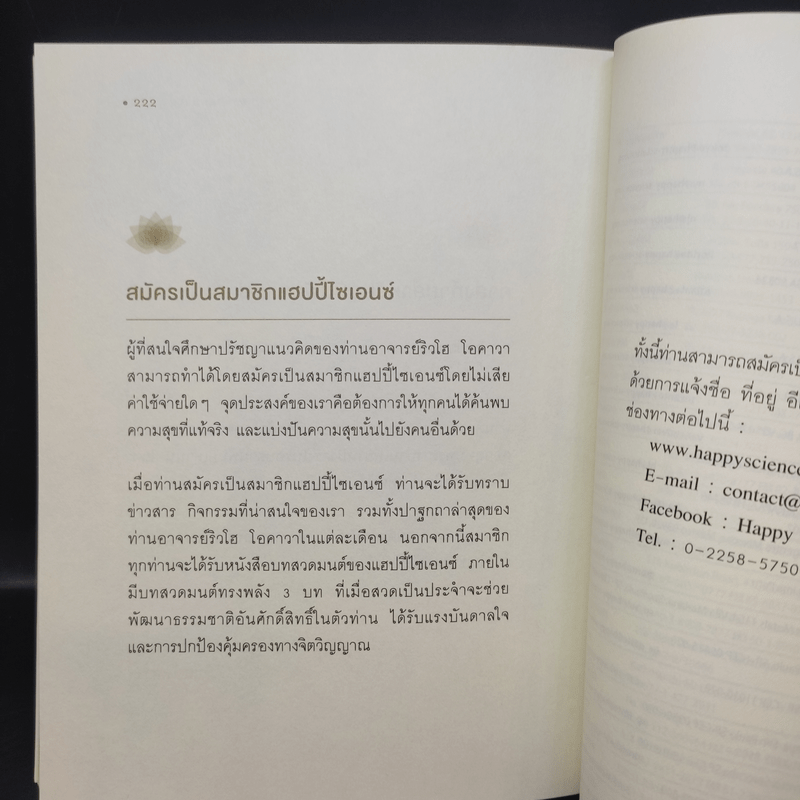 • 222
สมัครเป็นสมาชิกแฮปปี้ไซเอนซ์
ผู้ที่สนใจศึกษาปรัชญาแนวคิดของท่านอาจารย์ริวโฮ โอคาวา
สามารถทำได้โดยสมัครเป็นสมาชิกแฮปปี้ไซเอนซ์โดยไม่เสีย
ค่าใช้จ่ายใดๆ จุดประสงค์ของเราคือต้องการให้ทุกคนได้ค้นพบ
ความสุขที่แท้จริง และแบ่งปันความสุขนั้นไปยังคนอื่นด้วย
เมื่อท่านสมัครเป็นสมาชิกแฮปปี้ไซเอนซ์ ท่านจะได้รับทราบ
ข่าวสาร กิจกรรมที่น่าสนใจของเรา รวมทั้งปาฐกถาล่าสุดของ
ท่านอาจารย์ริวโฮ โอคาวาในแต่ละเดือน นอกจากนี้สมาชิก
ทุกท่านจะได้รับหนังสือบทสวดมนต์ของแฮปปี้ไซเอนซ์ ภายใน
มีบทสวดมนต์ทรงพลัง 3 บท ที่เมื่อสวดเป็นประจำจะช่วย
พัฒนาธรรมชาติอันศักดิ์สิทธิ์ในตัวท่าน ได้รับแรงบันดาลใจ
และการปกป้องคุ้มครองทางจิตวิญญาณ
ทั้งนี้ท่านสามารถสมัครเป็
ด้วยการแจ้งชื่อ ที่อยู่ อี
ช่องทางต่อไปนี้ :
www.happyscience
E-mail : contact@
Facebook : Happy
Tel. : 0-2258-5750